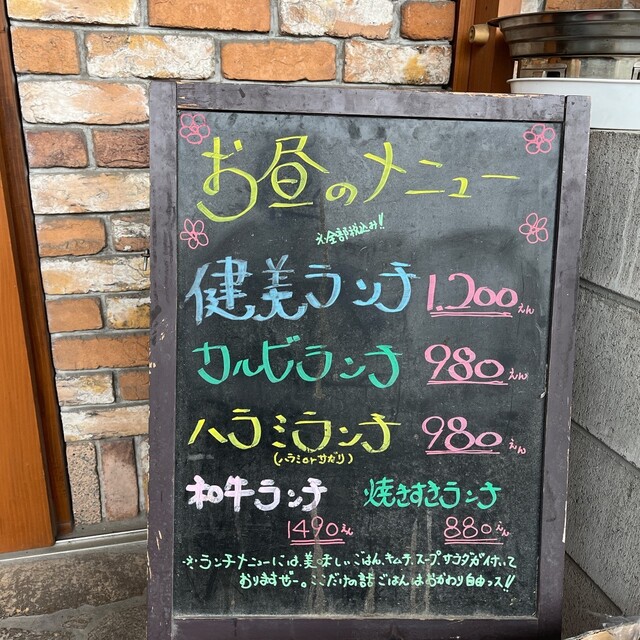 お昼のメニュー
※全部税込み!!
健美ランチ 1.200えん
カルビランチ 980えん
ハラミランチ 980えん
(ハラミorサガリ)
和牛ランチ 焼きすきランチ
1490えん 880えん
※ランチメニューには、美味しいごはん、キムチ、スープ、サラダが付いて
おりますぜー。ここだけの話ごはんはおかわり自由っス!!